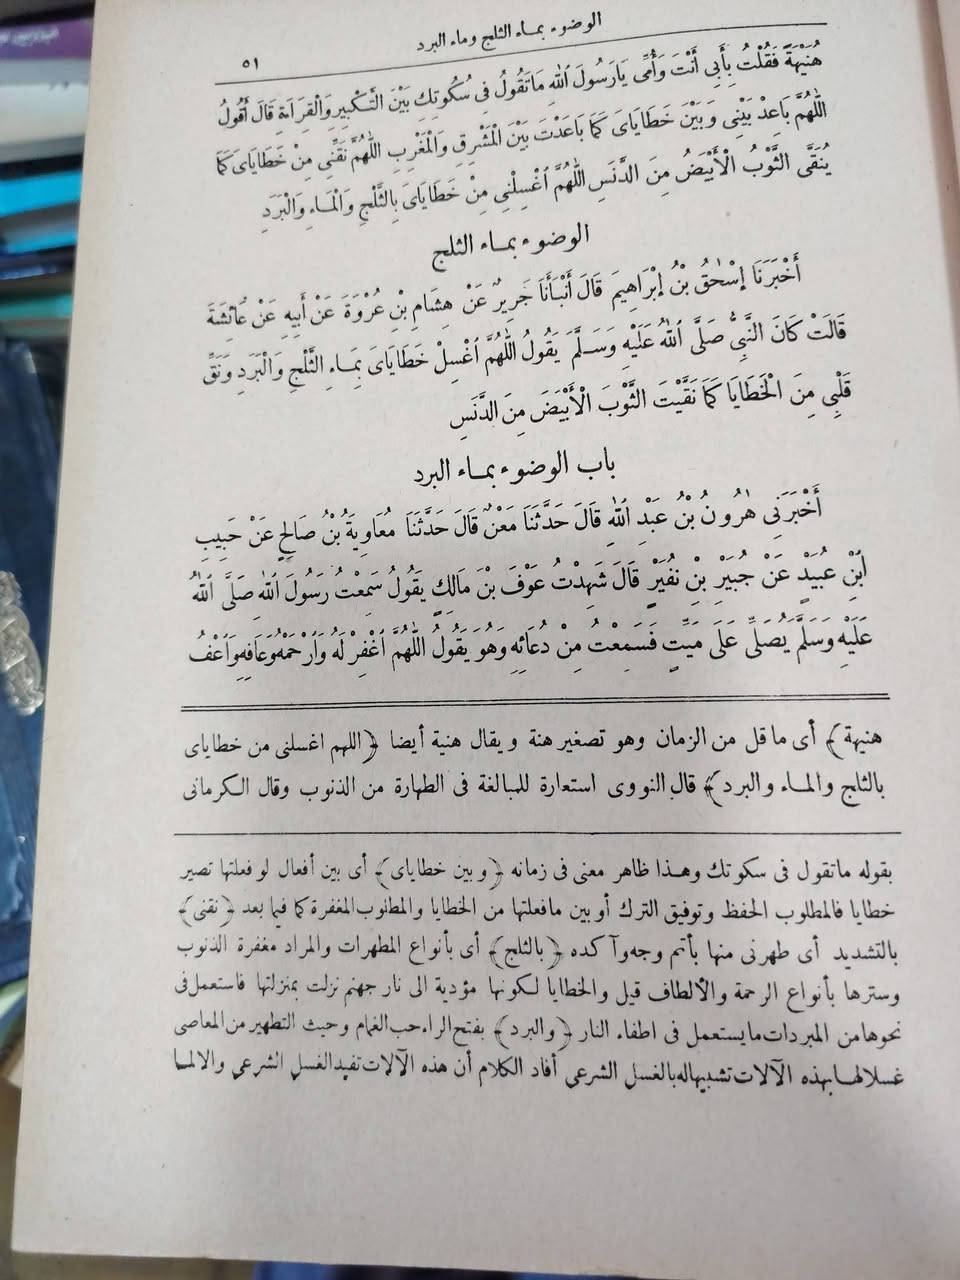 الوضوء بماء الثلج وماء البرد
٥١
هُنَيْهَةً فَقُلْتُ بِأَبِى أَنْتَ وَأُمِّى يَارَسُولَ اللهِ مَاتَقُولُ فِى سُكُوتِكَ بَيْنَ التَّكْبِيرِ وَالْقِرَاءَةِ قَالَ أَقُولُ
اللّٰهُمَّ بَاعِدْ بَيْنِى وَبَيْنَ خَطَايَاىَ كَمَا بَاعَدْتَ بَيْنَ الْمَشْرِقِ وَالْمَغْرِبِ اللّٰهُمَّ نَقِّنِى مِنْ خَطَايَاىَ كَمَا
يُنَقَّى الثَّوْبُ الْأَبْيَضُ مِنَ الدَّنَسِ اللّٰهُمَّ اغْسِلْنِى مِنْ خَطَايَاىَ بِالثَّلْجِ وَالْمَاءِ وَالْبَرَدِ
الوضوء بماء الثلج
أَخْبَرَنَا إِسْحٰقُ بْنُ إِبْرَاهِيمَ قَالَ أَنْبَأَنَا جَرِيرٌ عَنْ هِشَامِ بْنِ عُرْوَةَ عَنْ أَبِيهِ عَنْ عَائِشَةَ
قَالَتْ كَانَ النَّبِىُّ صَلَّى اللهُ عَلَيْهِ وَسَلَّمَ يَقُولُ اللّٰهُمَّ اغْسِلْ خَطَايَاىَ بِمَاءِ الثَّلْجِ وَالْبَرَدِ وَنَقِّ
قَلْبِى مِنَ الْخَطَايَا كَمَا نَقَّيْتَ الثَّوْبَ الْأَبْيَضَ مِنَ الدَّنَسِ
باب الوضوء بماء البرد
أَخْبَرَنِى هٰرُونُ بْنُ عَبْدِ اللهِ قَالَ حَدَّثَنَا مَعْنٌ قَالَ حَدَّثَنَا مُعَاوِيَةُ بْنُ صَالِحٍ عَنْ حَبِيبِ
ابْنِ عُبَيْدٍ عَنْ جُبَيْرِ بْنِ نُفَيْرٍ قَالَ شَهِدْتُ عَوْفَ بْنَ مَالِكٍ يَقُولُ سَمِعْتُ رَسُولَ اللهِ صَلَّى اللهُ
عَلَيْهِ وَسَلَّمَ يُصَلِّى عَلَى مَيِّتٍ فَسَمِعْتُ مِنْ دُعَائِهِ وَهُوَ يَقُولُ اللّٰهُمَّ اغْفِرْ لَهُ وَارْحَمْهُ وَعَافِهِ وَاعْفُ
هنيهة﴾ أى ماقل من الزمان وهو تصغير هنة ويقال هنية أيضا ﴿اللهم اغسلنى من خطاياى
بالثلج والماء والبرد﴾ قال النووى استعارة للمبالغة فى الطهارة من الذنوب وقال الكرمانى
بقوله ماتقول فى سكوتك وهذا ظاهر معنى فى زمانه ﴿وبين خطاياى﴾ أى بين أفعال لو فعلتها تصير
خطايا فالمطلوب الحفظ وتوفيق الترك أو بين مافعلتها من الخطايا والمطلوب المغفرة كما فيما بعد ﴿نقنى﴾
بالتشديد أى طهرنى منها بأتم وجه وآكده ﴿بالثلج﴾ أى بأنواع المطهرات والمراد مغفرة الذنوب
وسترها بأنواع الرحمة والألطاف قيل والخطايا لكونها مؤدية الى نار جهنم نزلت بمنزلتها فاستعمل فى
نحوها من المبردات مايستعمل فى اطفاء النار ﴿والبرد﴾ بفتح الراء حب الغمام وحيث التطهير من المعاصى
غسلا لها بهذه الآلات تشبيها له بالغسل الشرعى أفاد الكلام أن هذه الآلات تفيد الغسل الشرعى والالما